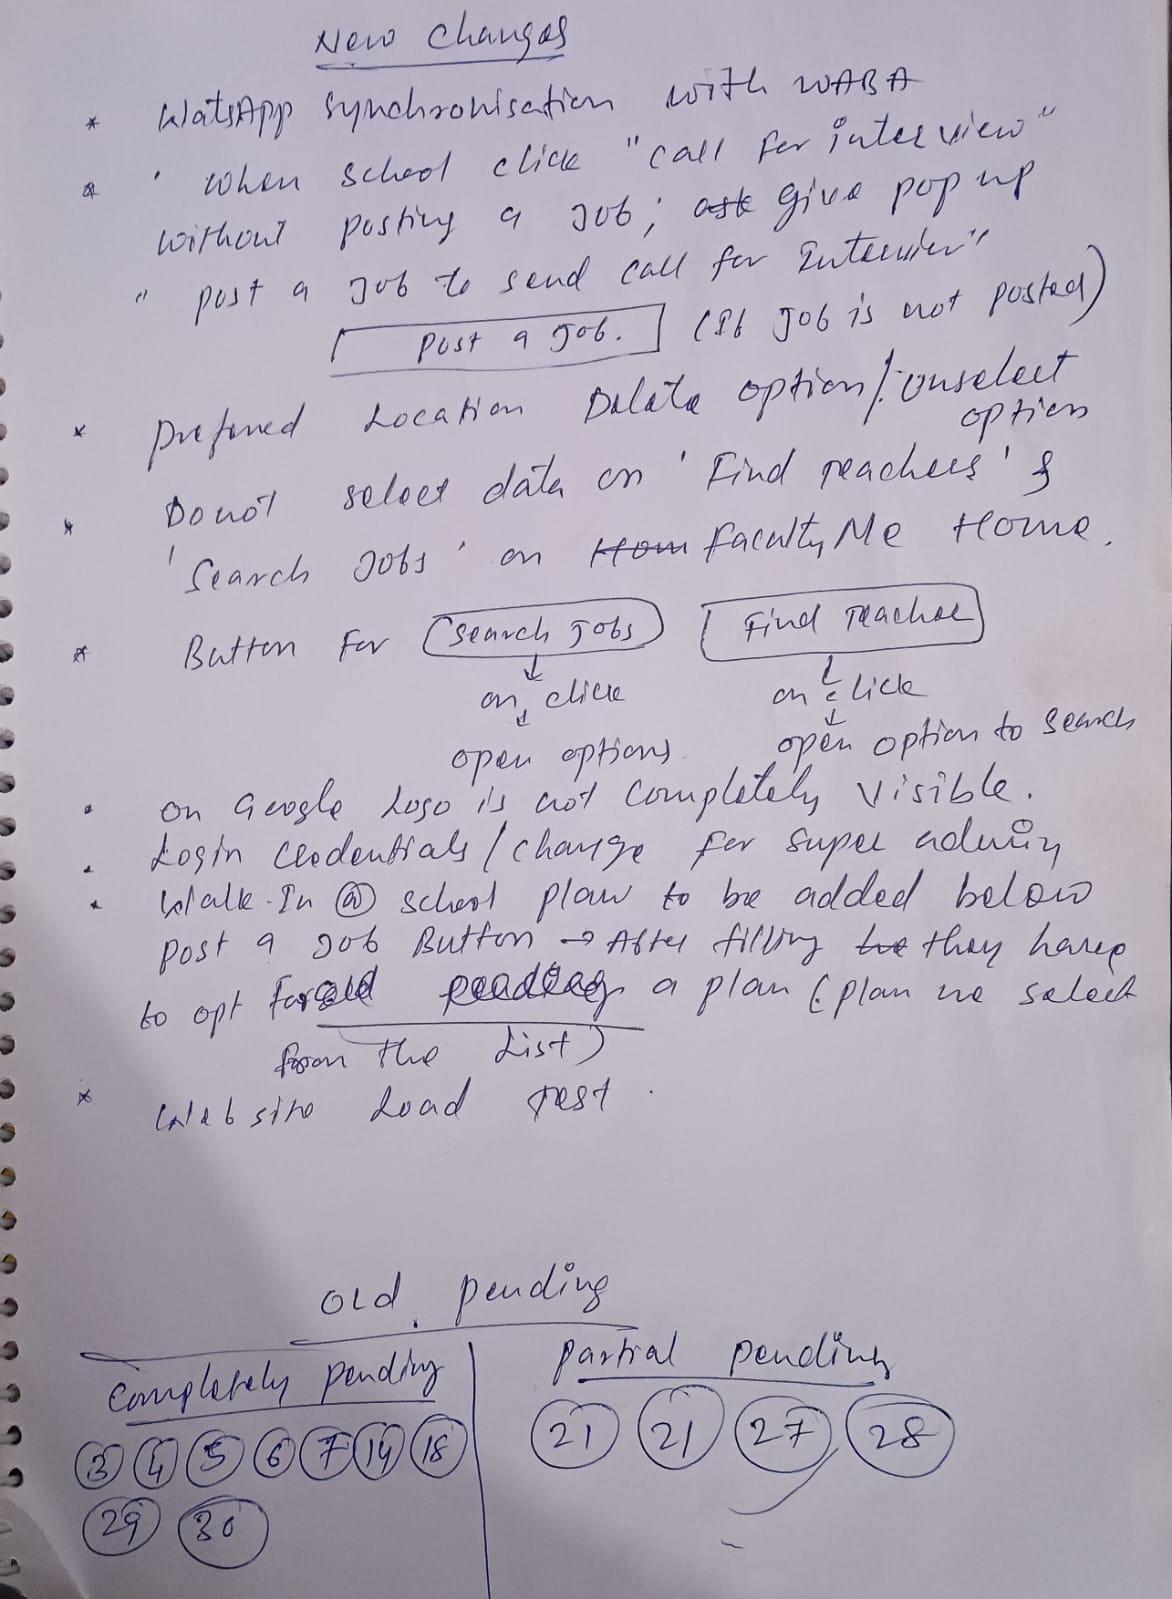 New Changes
* WatsApp Synchronisation with WABA
* ' When school click "call for interview"
without posting a Job; ask give pop up
" post a Job to send call for Interview"
Post a Job. (If Job is not posted)
* Prefered Location Delete option/unselect
option
* Do not select data on 'Find Teachers' &
'Search Jobs' on Hom FacultyMe Home.
* Button for Search Jobs Find Teacher
on click on click
open options open option to search
on Google Logo is not completely visible.
Login Credentials/change for super admin
* Walk-In @ school plan to be added below
Post a Job Button → After filling they have
to opt for a plan (plan we select
from the List)
* Website Load Test.
Old pending
Completely pending Partial pending
3 4 5 6 7 14 18 21 21 27 28
29 30